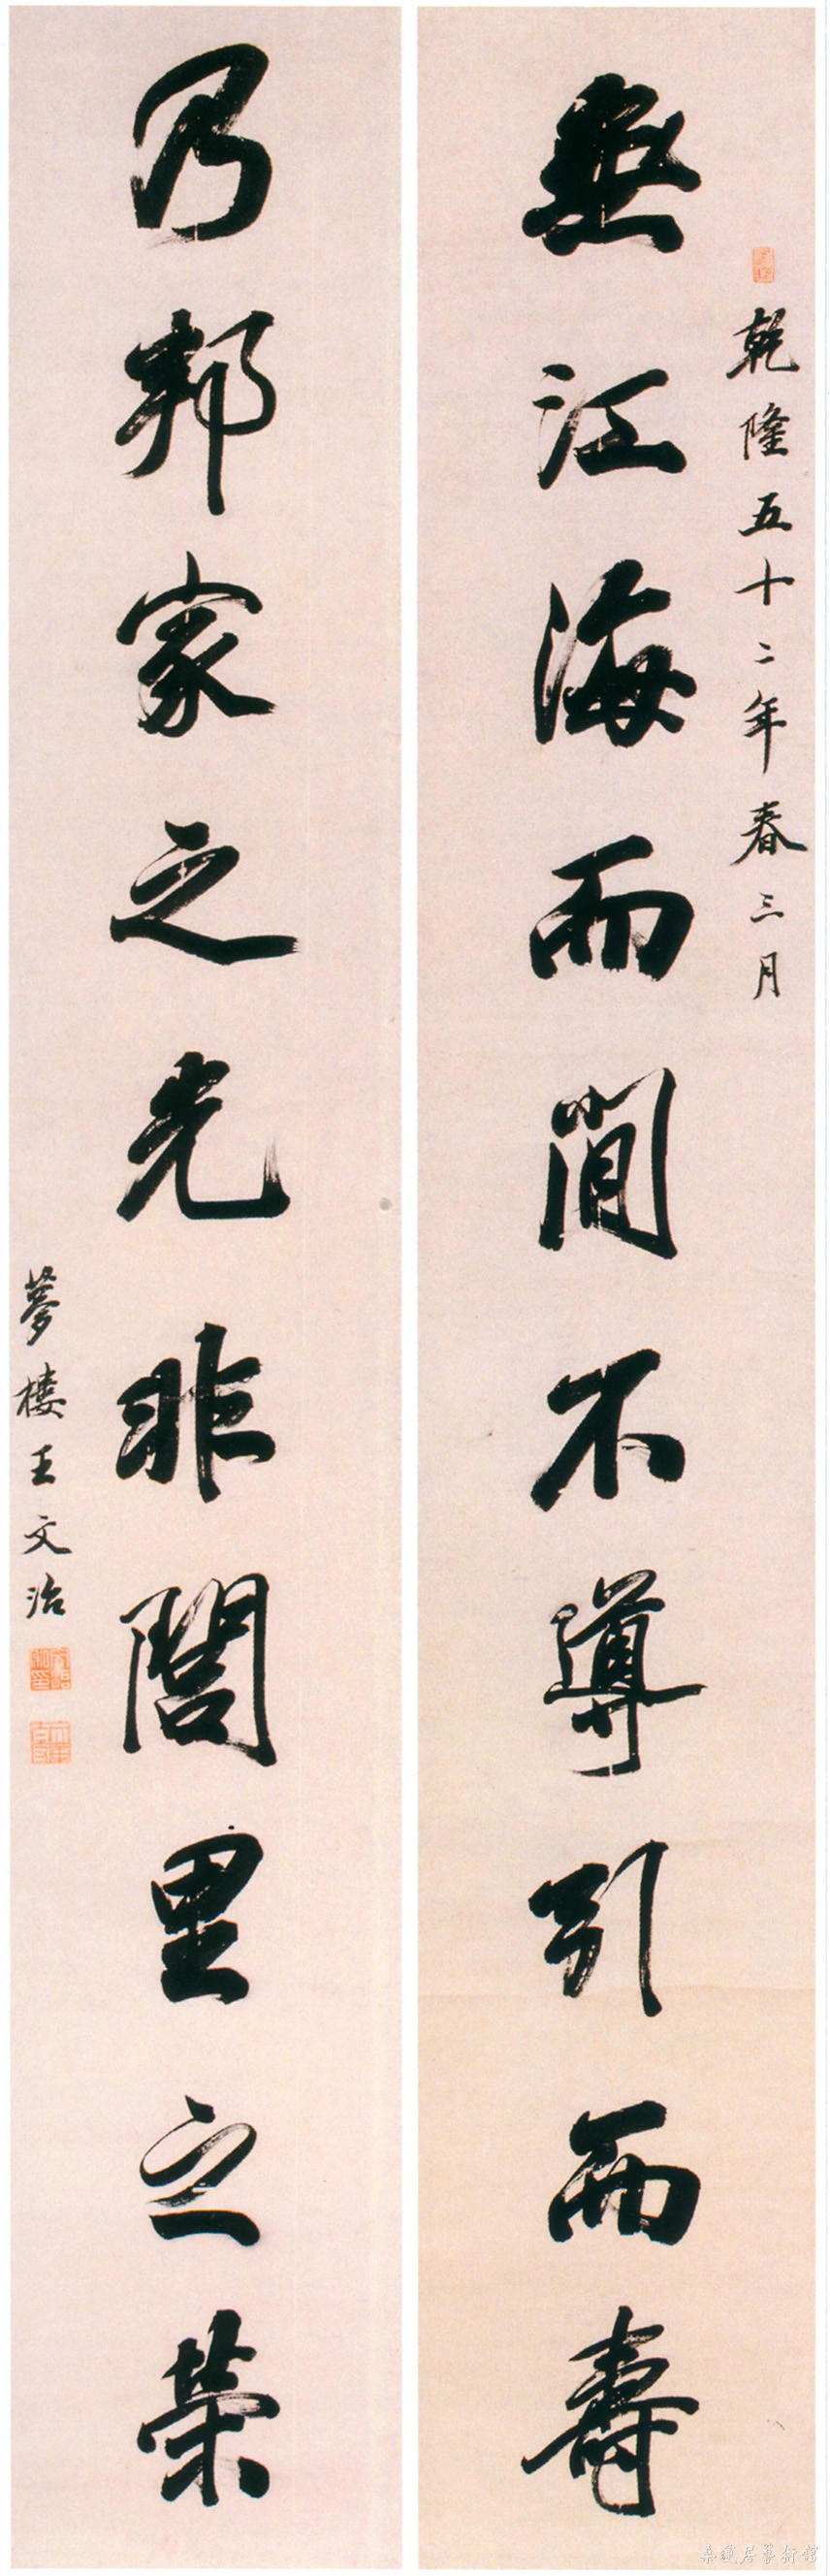 乾隆五十二年春三月
無江海而閒不導引而壽
乃邦家之光非閭里之榮
夢樓王文治
桑蓮居藝術館